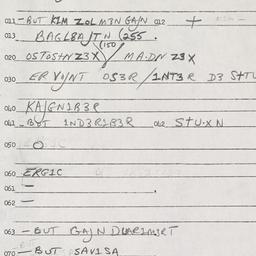 011 - BUT KIM ZOL M3N GAJN 012 +
013 BAGL8A/TN (255.
(150)
020 OSTOSTN Z3X / MA.DN Z3X
030 ER VO/NT OS3R / 1NT3R D3 STTL
040 KA/GN1B3R
041 - BUT 1ND3R1B3R 042 STU.XN
050 O
060 ERG1C
061 -
062 -
063 - BUT GAJN DUAR1M3RT
070 - BUT SAV1SA